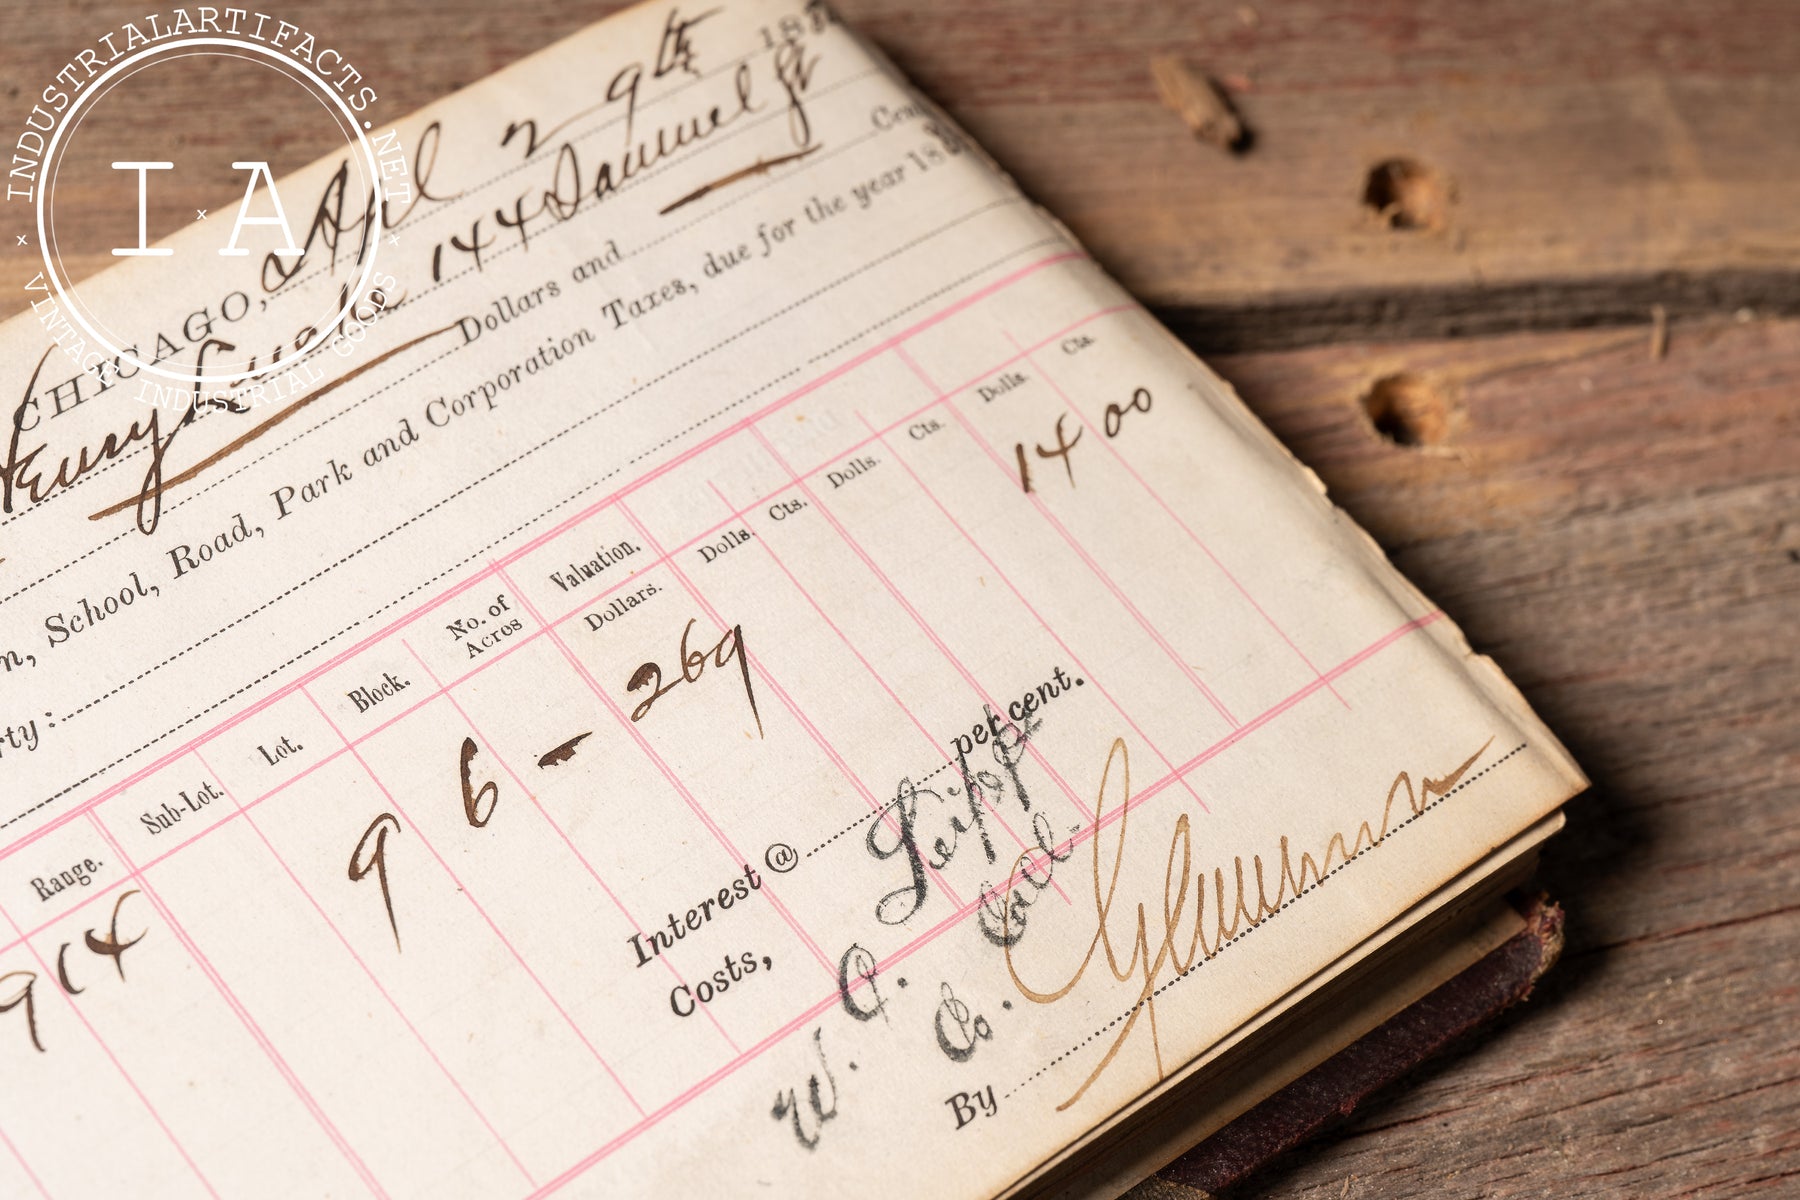 INDUSTRIALARTIFACTS.NET
I A
VINTAGE INDUSTRIAL GOODS
CHICAGO, April 29th 188
Henry 144 Samuel St
Dollars and Cen
n, School, Road, Park and Corporation Taxes, due for the year 188
rty:
Range. Sub-Lot. Lot. Block. No. of Acres Valuation.
Dollars. Dolls. Cts. Dolls. Cts. Dolls. Cts.
914 9 6 - 269 14 00
Interest @ per cent.
Costs,
W. O. Seipp
Co. Col.
By